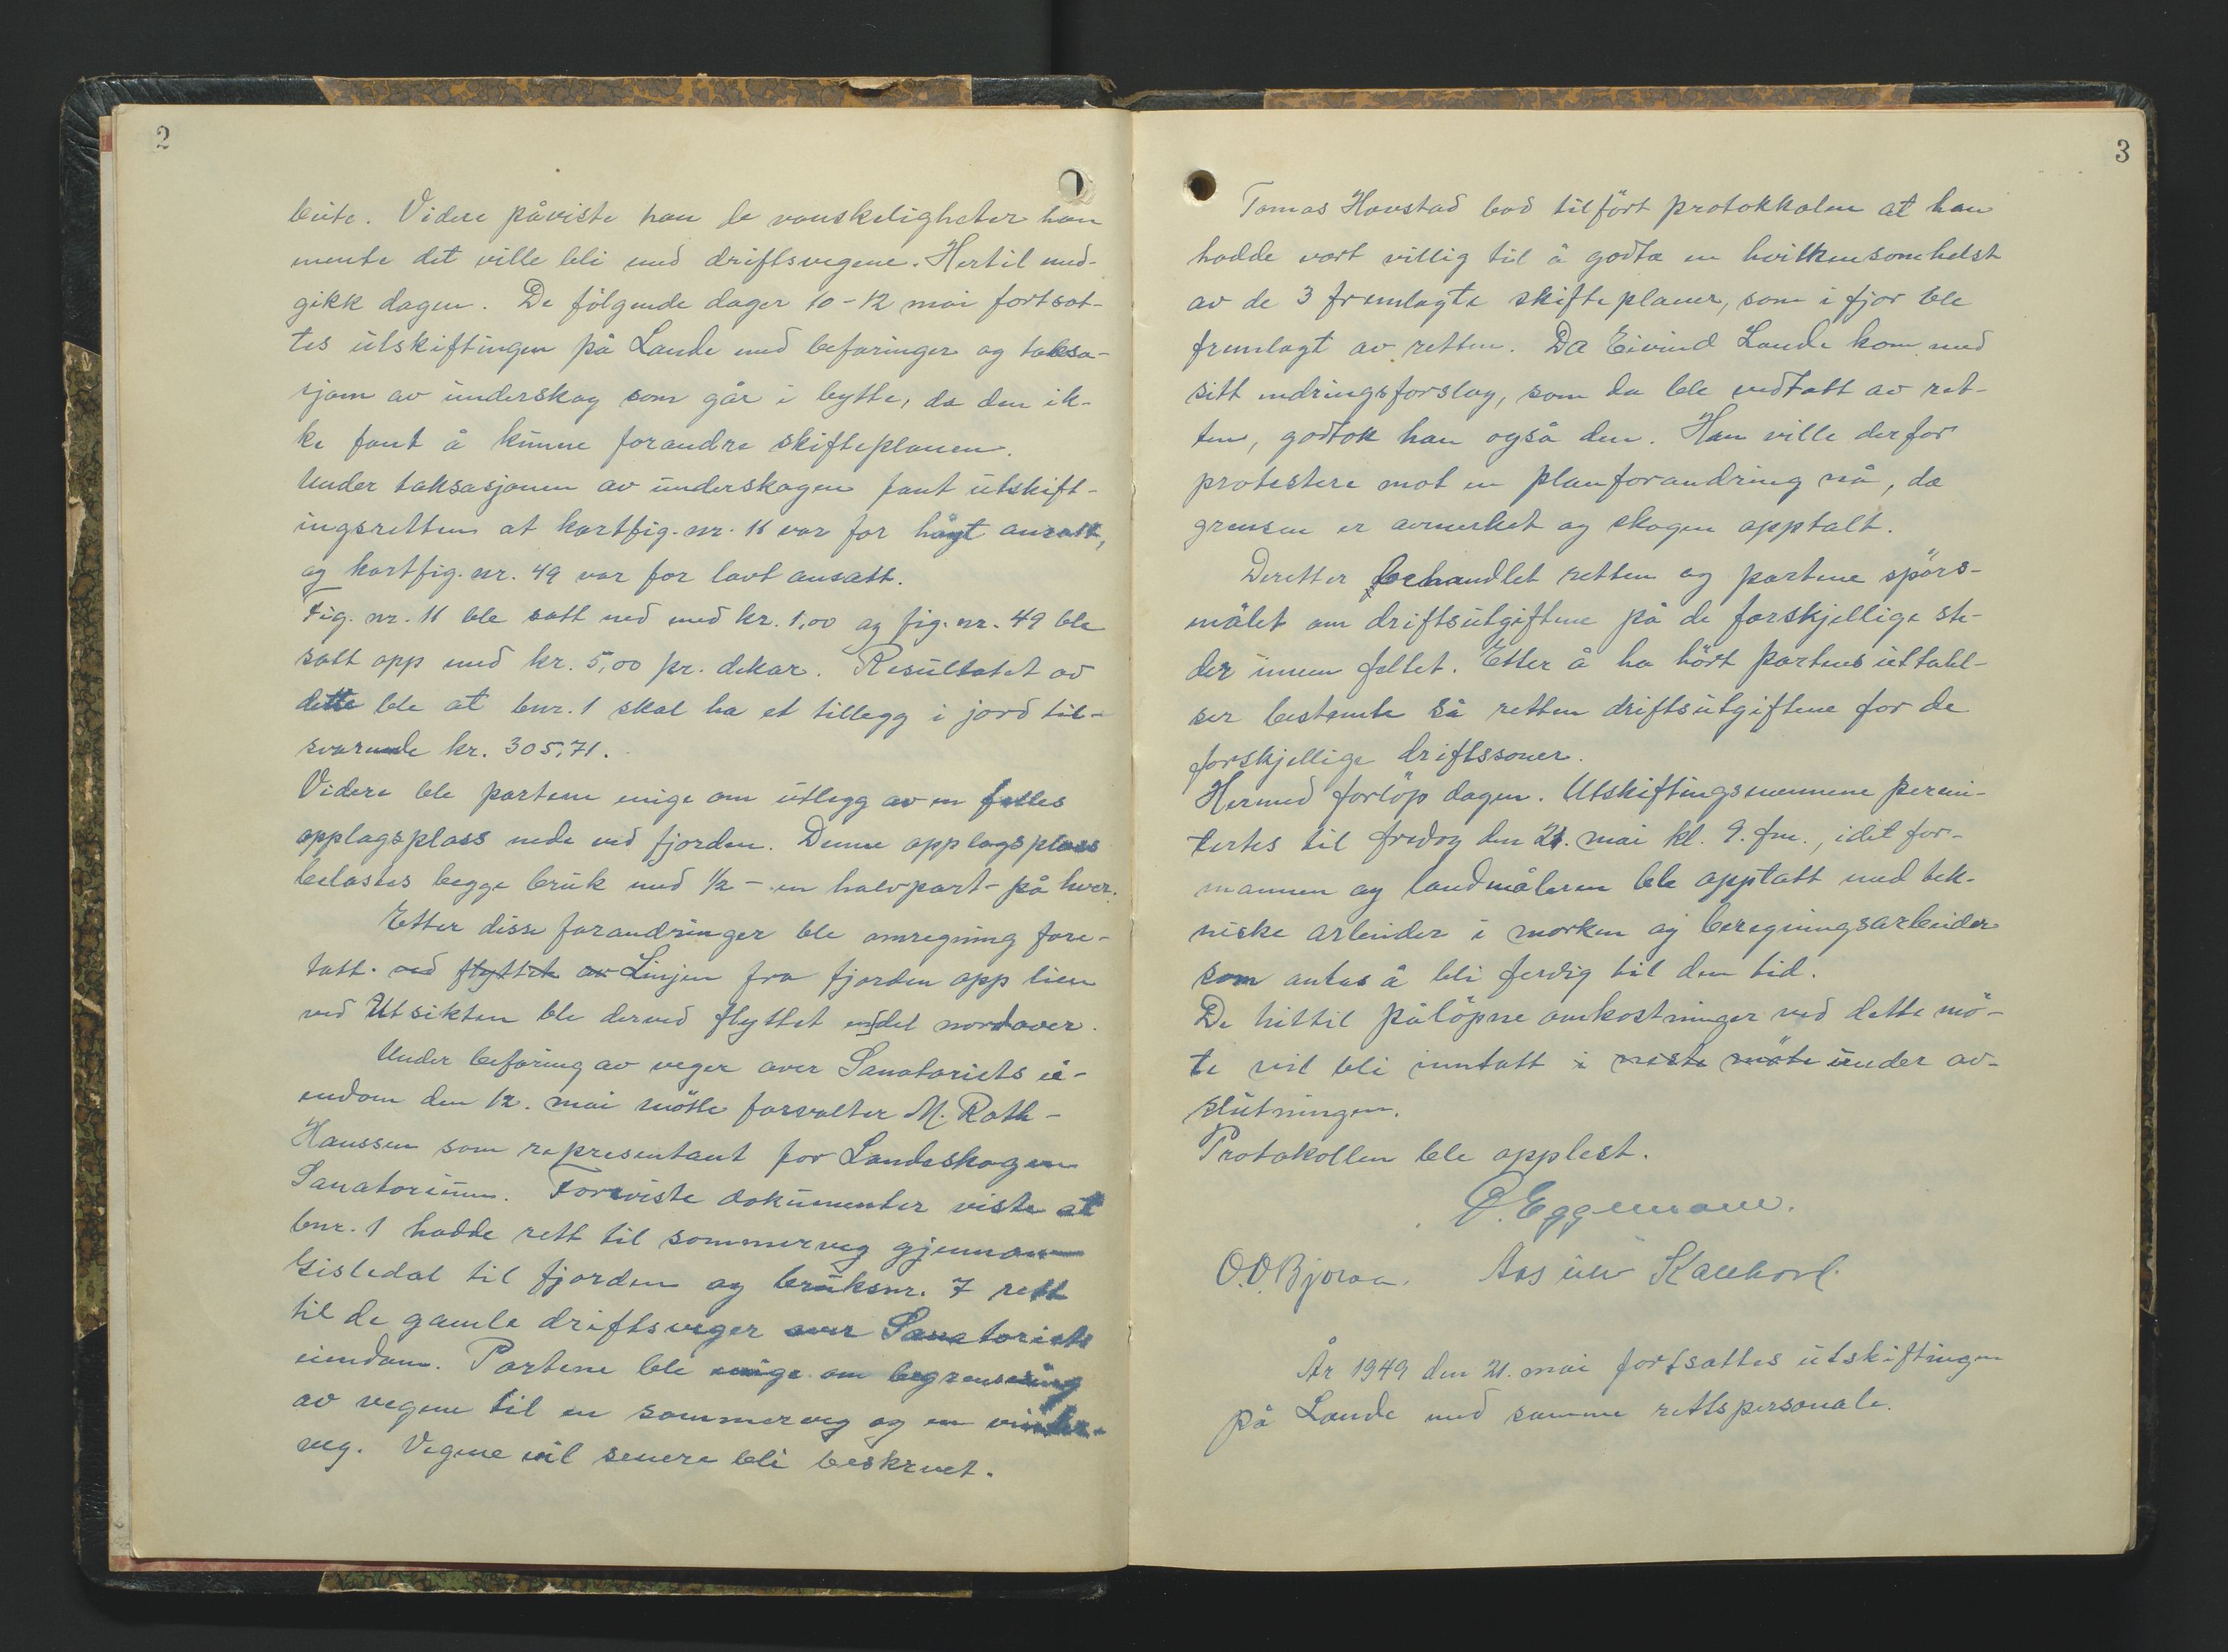 2
beite. Videre påviste han de vanskeligheter han
mente det ville bli med driftsvegene. Hertil med-
gikk dagen. De fölgende dager 10-12 mai fortsat-
tes utskiftingen på Lande med befaringer og taksa-
sjom av underskog som går i bytte, da den ik-
ke fant å kunne forandre skifteplanen.
Under taksasjonen av underskogen fant utskift-
ingsretten at kartfig. nr. 16 var for høgt ansatt,
og kartfig. nr. 49 var for lavt ansatt.
Fig. nr. 16 ble satt ned med kr. 1,00 og fig. nr. 49 ble
satt opp med kr. 5,00 pr. dekar. Resultatet av
dette ble at bnr. 1 skal ha et tillegg i jord til-
svarende kr. 305,71.
Videre ble partene enige om utlegg av en felles
opplagsplass nede ved fjorden. Denne opplagsplass
belastes begge bruk med 1/2 - en halvpart - på hver.
Etter disse forandringer ble omregning fore-
tatt. ved flyttet av Linjen fra fjorden opp lien
ved Utsikten ble derved flyttet endel nordover.
Under befaring av veger over Sanatoriets ei-
endom den 12. mai mötte forvalter M. Roth-
Hanssen som representant for Landeskogen
Sanatorium. Foreviste dokumenter viste at
bnr. 1 hadde rett til sommerveg gjennom
Gisledal til fjorden og bruksnr. 7 rett
til de gamle driftsveger over Sanatoriets
eiendom. Partene ble enige om begrensning
av vegene til en sommerveg og en vinter-
veg. Vegene vil senere bli beskrevet.
3
Tomas Hovstad bad tilfört protokkolen at han
hadde vært villig til å godta en hvilkensomhelst
av de 3 fremlagte skifteplaner, som i fjor ble
fremlagt av retten. Da Eivind Lande kom med
sitt endringsforslag, som da ble vedtatt av ret-
ten, godtok han også den. Han ville derfor
protestere mot en planforandring nå, da
grensen er avmerket og skogen opptalt.
Deretter behandlet retten og partene spörs-
målet om driftsutgiftene på de forskjellige ste-
der innen feltet. Etter å ha hört partenes uttalel-
ser bestemte så retten driftsutgiftene for de
forskjellige driftssoner.
Hermed forlöp dagen. Utskiftingsmennene permi-
tertes til fredag den 21. mai kl. 9. fm., idet for-
mannen og landmåleren ble opptatt med tek-
niske arbeider i marken og beregningsarbeider
som antas å bli ferdig til den tid.
De hittil pålöpne omkostninger ved dette mö-
te vil bli inntatt i neste möte under av-
slutningen.
Protokollen ble opplest.
Eggemoen.
O.O. Bjoraa. Aasulv
År 1949 den 21. mai fortsattes utskiftingen
på Lande med samme rettspersonale.